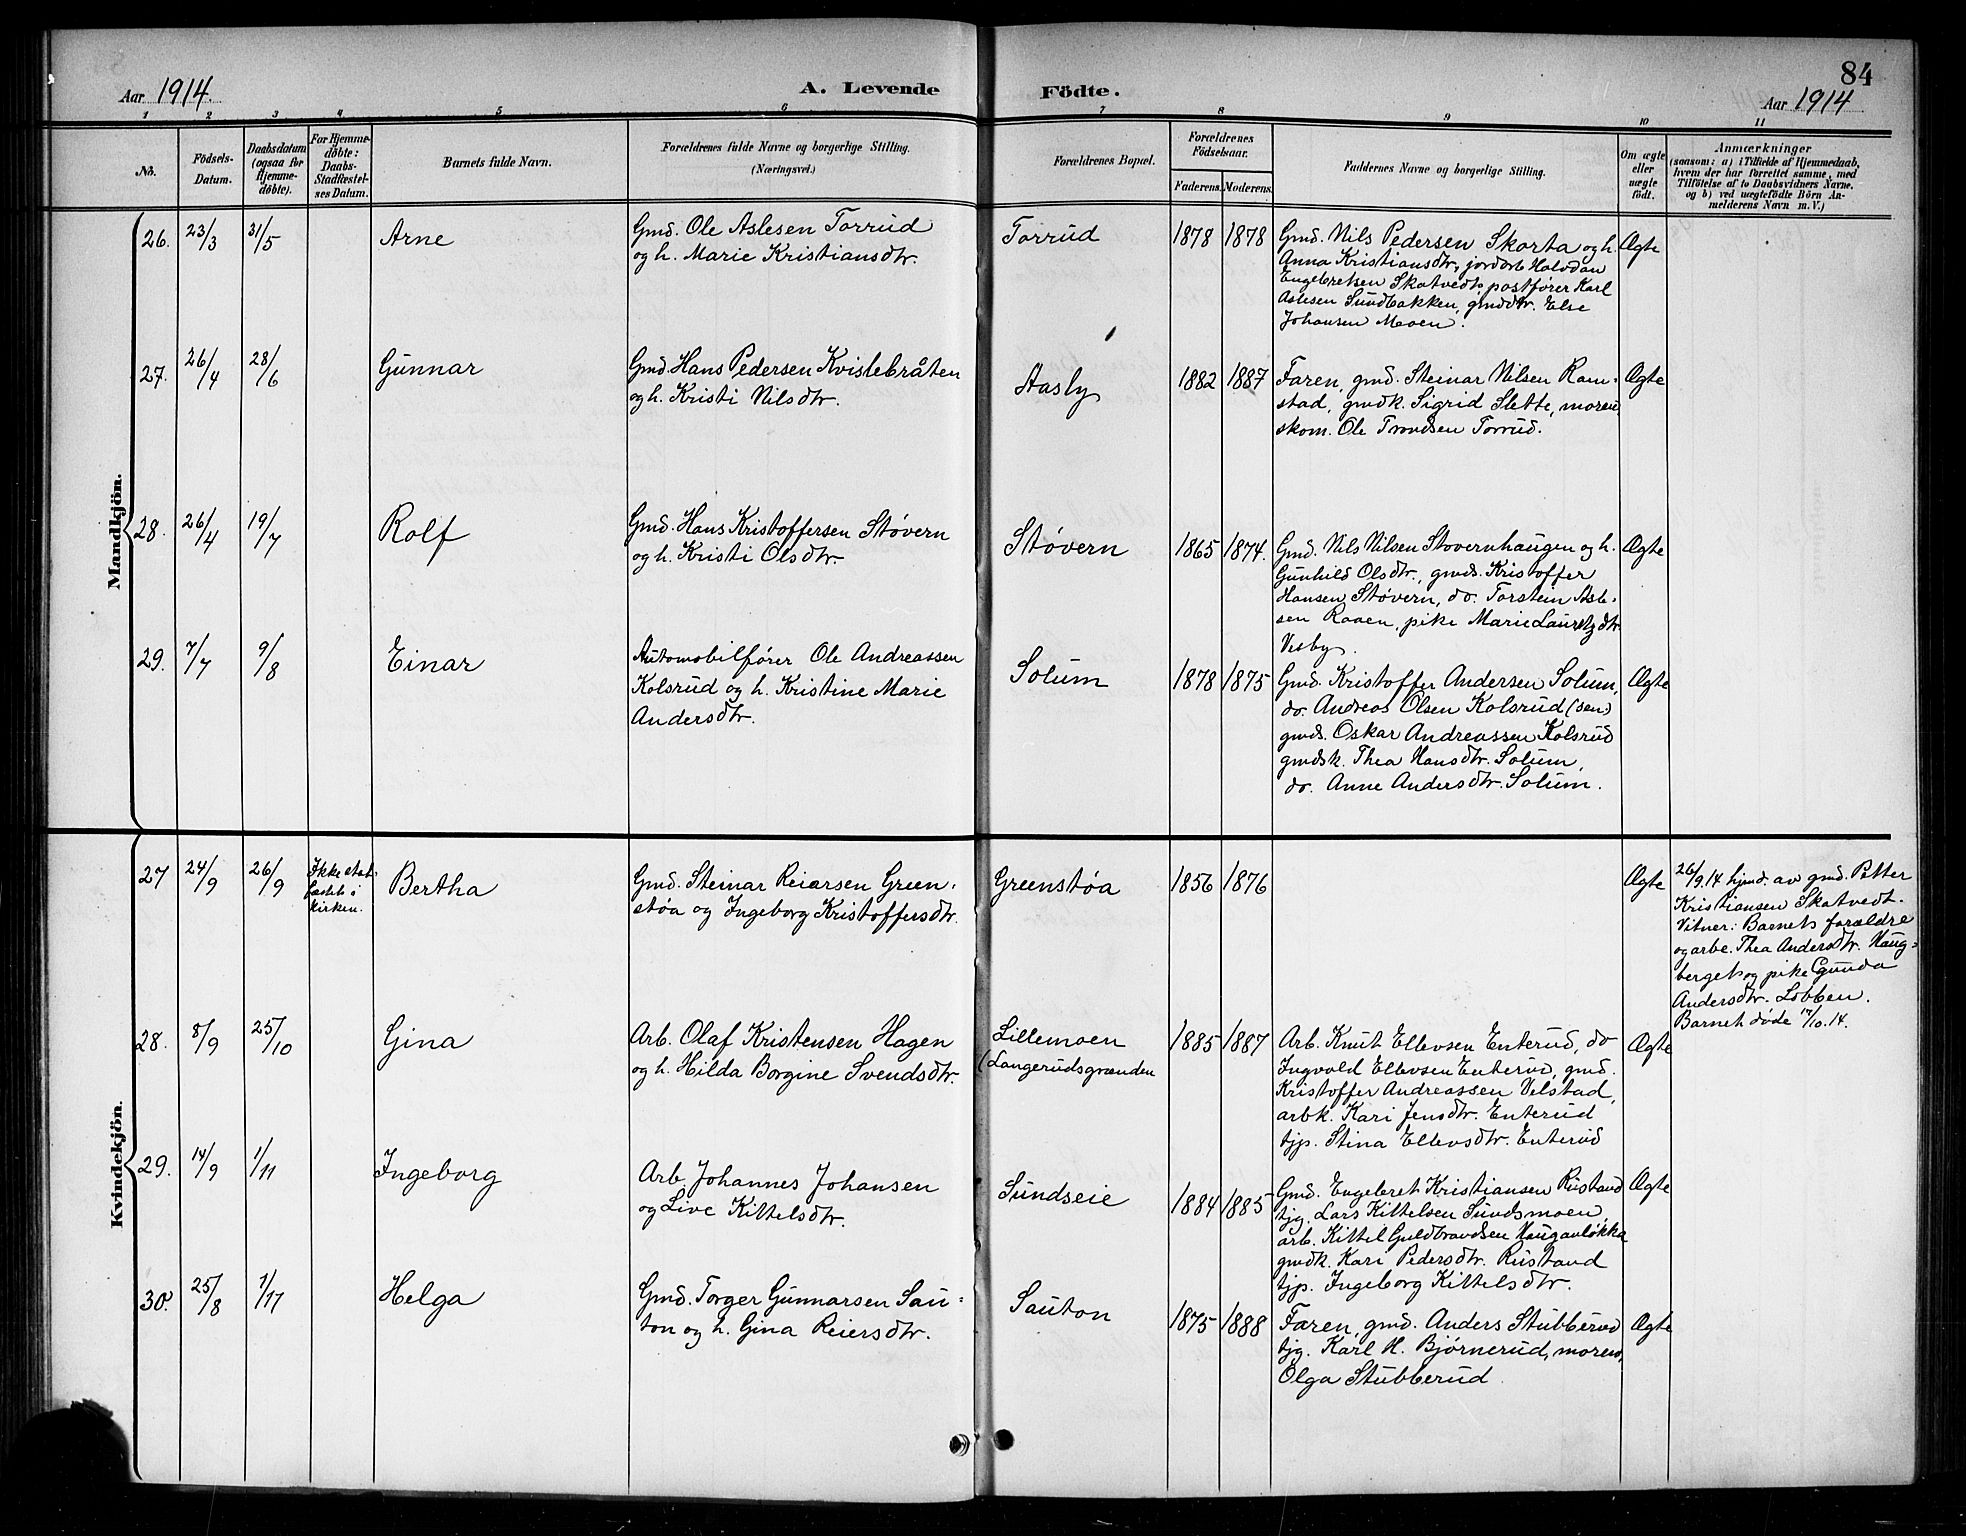 84
Aar 1914.
A. Levende
Födte.
Aar 1914
1 2 3 4 5 6 7 8 9 10 11
No.
Födsels-Datum.
Daabsdatum (ogsaa for Hjemmedöbte).
For Hjemmedöbte: Daabs-Stadfæstelses Datum.
Barnets fulde Navn.
Forældrenes fulde Navne og borgerlige Stilling.
(Næringsvei.)
Forældrenes Bopæl.
Forældrenes Födselsaar.
Faderens. Moderens.
Faddernes Navne og borgerlige Stilling.
Om ægte eller uægte födt.
Anmærkninger
(saasom: a) i Tilfælde af Hjemmedaab,
hvem der har forrettet samme, med
Tilföielse af to Daabsvidners Navne,
og b) ved uægtefödte Börn An-
melderens Navn m. V.)
Mandkjön.
26. 23/3 31/5 Arne
Gmd. Ole Aslesen Torrud
og h. Marie Kristiansdtr.
Torrud 1878 1878
Gmd. Nils Pedersen Skarta og h.
Anna Kristiansdtr, jordarb Halvdan
Engebretsen Skatvedt, postfører Karl
Aslesen Sundbakken, gmddtr. Else
Johansen Moen.
Ægte
27. 26/4 28/6 Gunnar
Gmd. Hans Pedersen Kvislebråten
og h. Kristi Nilsdtr.
Aasly 1882 1887
Faren, gmd. Steinar Nilsen Ram-
stad, gmdk. Sigrid Slette, moren,
skom. Ole Trondsen Torrud.
Ægte
28. 26/4 19/7 Rolf
Gmd. Hans Kristoffersen Støvern
og h. Kristi Olsdtr.
Støvern 1865 1874.
Gmd. Nils Nilsen Stovernhaugen og h.
Gunhild Olsdtr., gmds. Kristoffer
Hansen Støvern, do. Torstein Asle-
sen Raaen, pike Marie Lauritzdtr.
Vesby.
Ægte
29. 7/7 9/8 Einar
Automobilfører Ole Andreassen
Kolsrud og h. Kristine Marie
Andersdtr.
Solum 1878 1875
Gmd. Kristoffer Andersen Solum,
do. Andreas Olsen Kolsrud (sen.)
gmds. Oskar Andreassen Kolsrud
gmdsk. Thea Hansdtr. Solum,
do. Anne Andersdtr. Solum.
Ægte
Kvindekjön.
27 24/9 26/9
Ikke stad-
fæstet i
kirken.
Bertha
Gmd. Steinar Reiarsen Green-
støa og Ingeborg Kristoffersdtr.
Greenstøa 1856 1876
Ægte
26/9.14 hjmd. av gmd. Petter
Kristiansen Skatvedt.
Vitner: Barnets forældre
og arbe. Thea Andersdtr. Haug-
berget og pike Gunda
Andersdtr. Lobben.
Barnet døde 17/10.14.
28. 8/9 25/10 Gina
Arb. Olaf Kristensen Hagen
og h. Hilda Borgine Svendsdtr.
Lillemoen
(Langerudsgrænden
1885 1887
Arb. Knut Ellevsen Enterud, do
Ingvald Ellevsen Enterud, gmd.
Kristoffer Andreassen Velstad,
arbk. Kari Jensdtr. Enterud
tjp. Stina Ellevsdtr. Enterud
Ægte
29. 14/9 1/11 Ingeborg
Arb. Johannes Johansen
og Live Kittelsdtr.
Sundseie 1884 1885
Gmd. Engebret Kristiansen Rustand
tjg. Lars Kittelsen Sundsmoen,
arb. Kittel Guldbrandsen Hauganløkka
gmdk. Kari Pedersdtr. Rustand
tjp. Ingeborg Kittelsdtr.
Ægte
30. 25/8 1/11 Helga
Gmd. Torger Gunnarsen Sau-
ton og h. Gina Reiersdtr.
Sauton 1875 1888
Faren, gmd. Anders Stubberud
tjg. Karl H. Bjørnerud, moren,
Olga Stubberud
Ægte